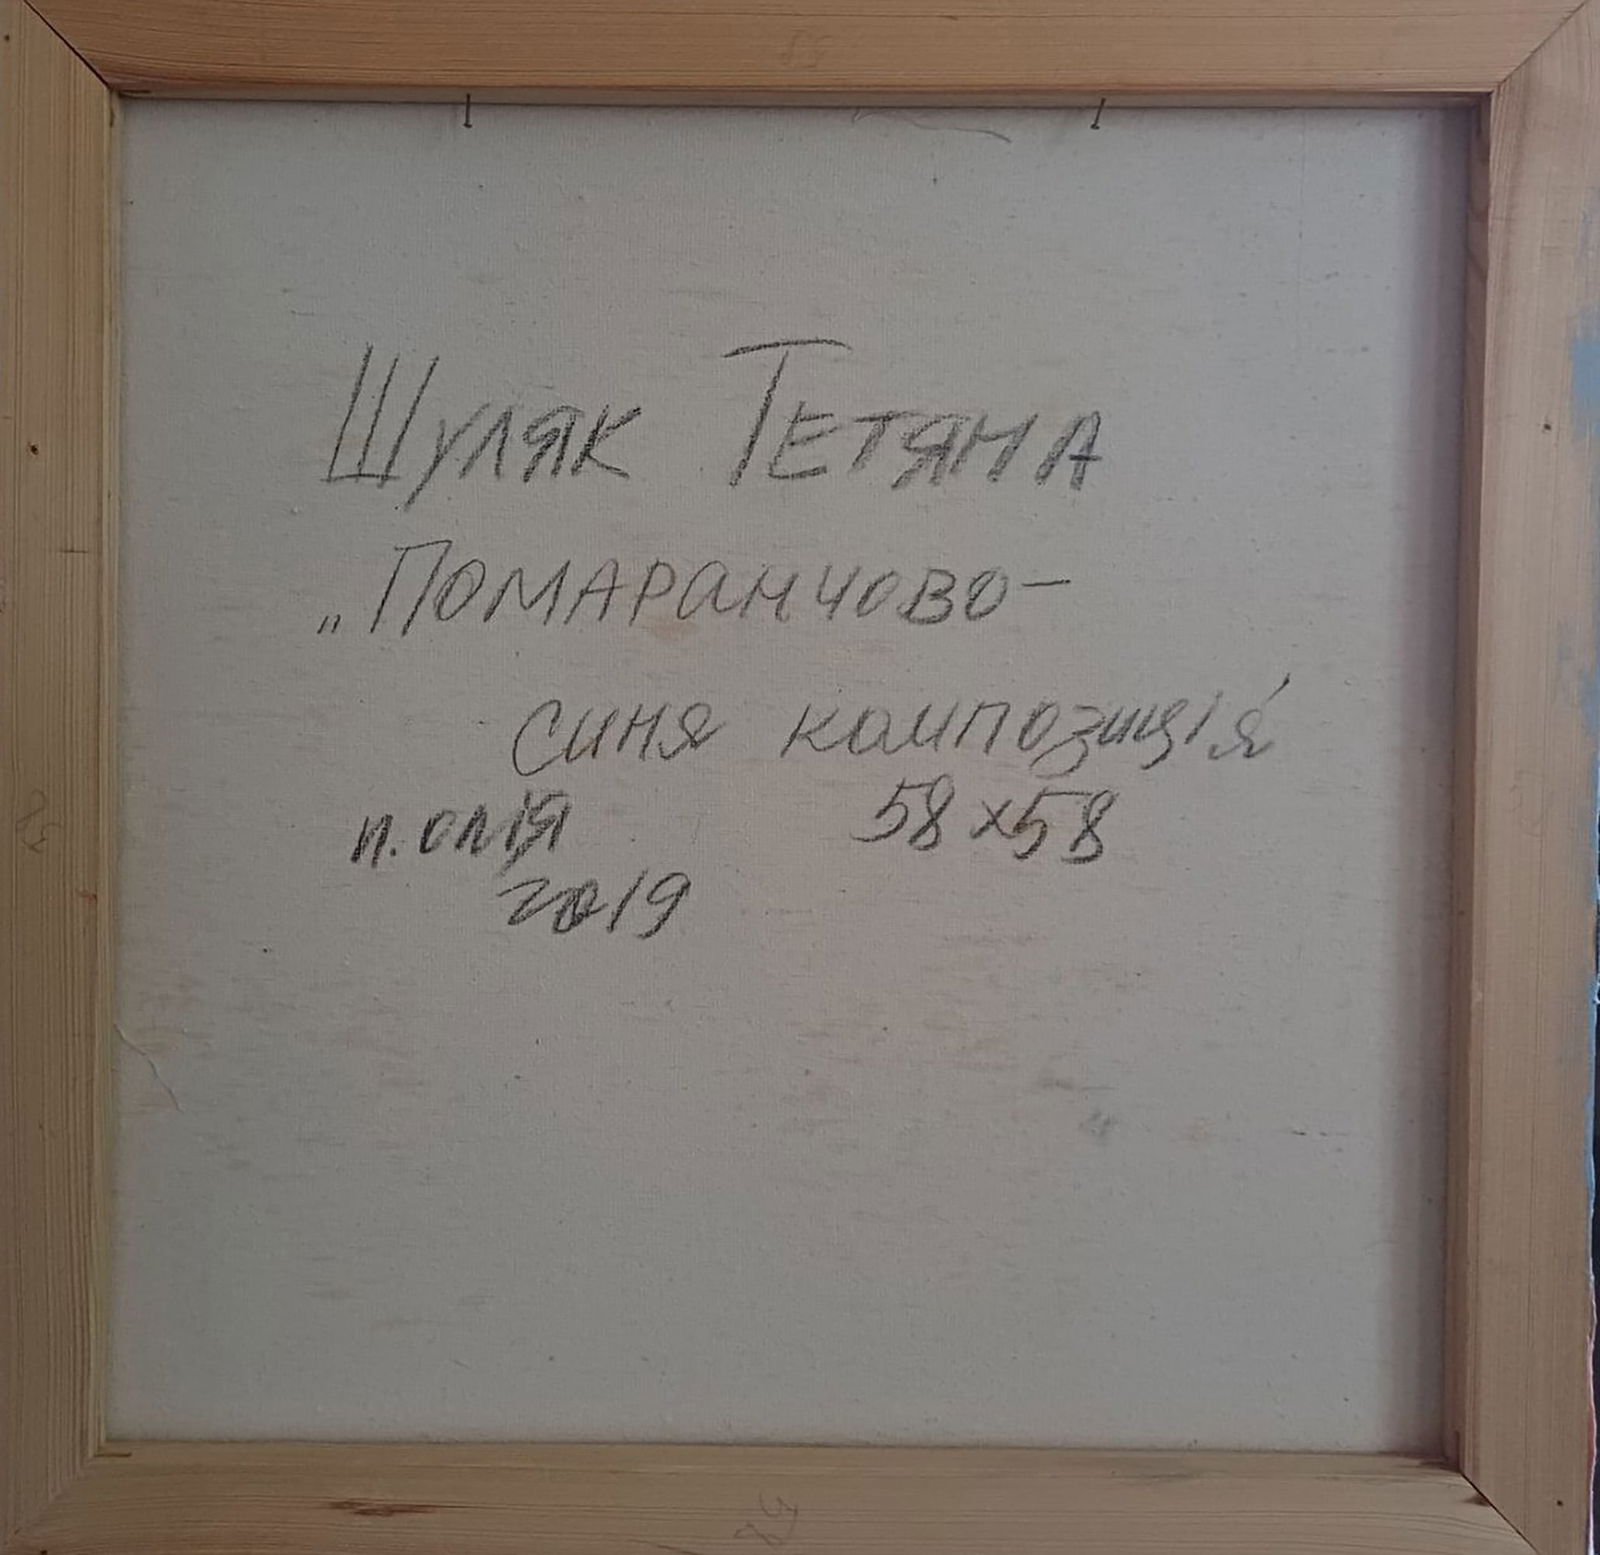 Шуляк Тетяна
„Помаранчово-
синя композиція"
п. олія 58х58
2019